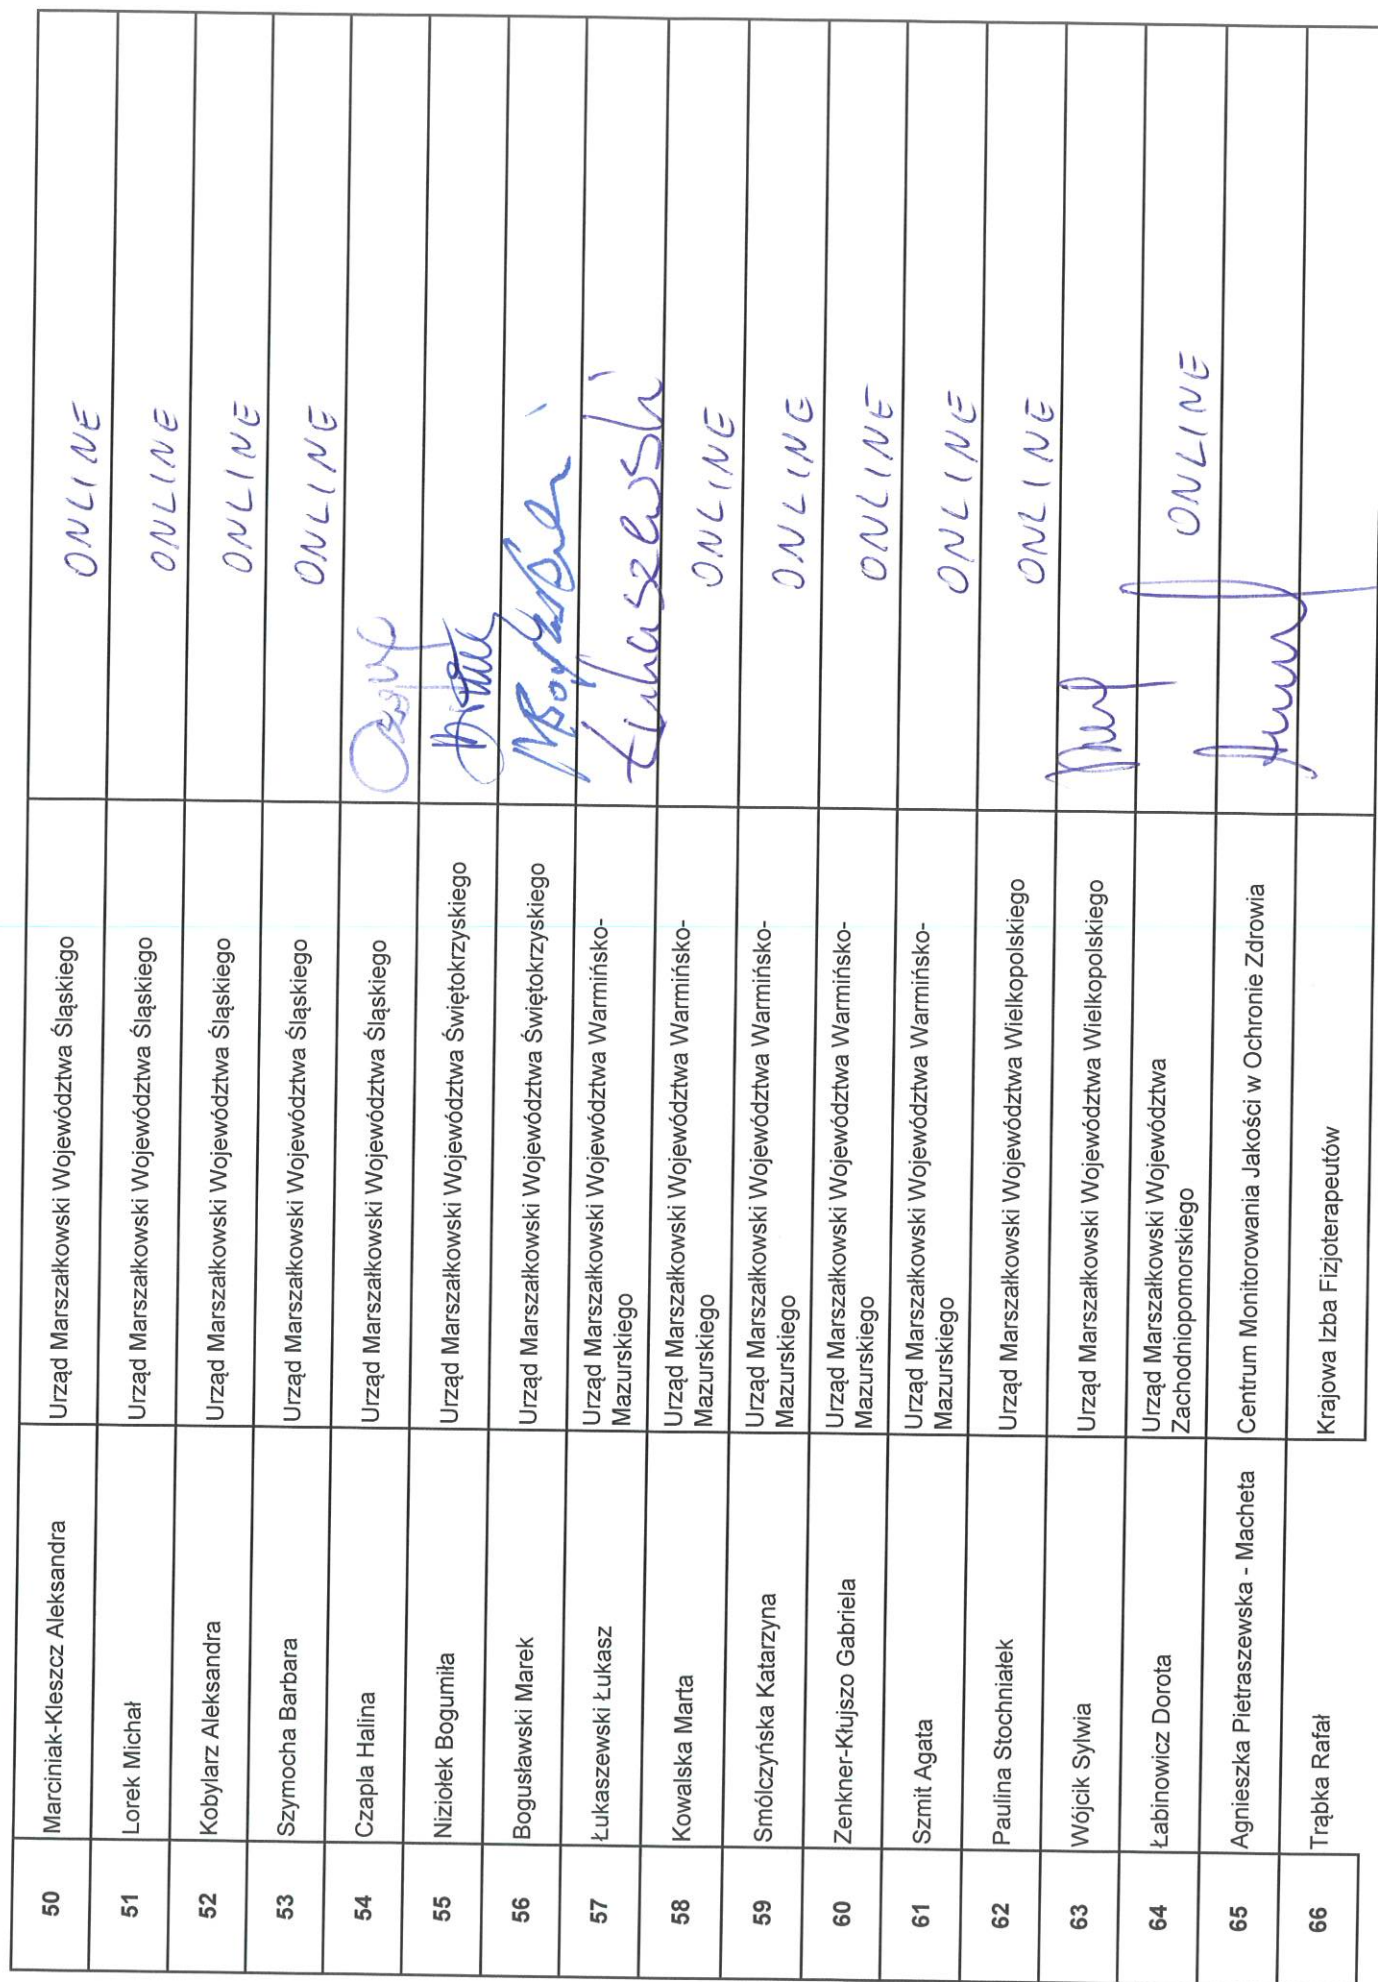 50 Marciniak-Kleszcz Aleksandra Urząd Marszałkowski Województwa Śląskiego ONLINE
51 Lorek Michał Urząd Marszałkowski Województwa Śląskiego ONLINE
52 Kobylarz Aleksandra Urząd Marszałkowski Województwa Śląskiego ONLINE
53 Szymocha Barbara Urząd Marszałkowski Województwa Śląskiego ONLINE
54 Czapla Halina Urząd Marszałkowski Województwa Śląskiego
55 Niziołek Bogumiła Urząd Marszałkowski Województwa Świętokrzyskiego
56 Bogusławski Marek Urząd Marszałkowski Województwa Świętokrzyskiego
57 Łukaszewski Łukasz Urząd Marszałkowski Województwa Warmińsko- Łukaszewski
Mazurskiego
58 Kowalska Marta Urząd Marszałkowski Województwa Warmińsko- ONLINE
Mazurskiego
59 Smólczyńska Katarzyna Urząd Marszałkowski Województwa Warmińsko- ONLINE
Mazurskiego
60 Zenkner-Kłujszo Gabriela Urząd Marszałkowski Województwa Warmińsko- ONLINE
Mazurskiego
61 Szmit Agata Urząd Marszałkowski Województwa Warmińsko- ONLINE
Mazurskiego
62 Paulina Stochniałek Urząd Marszałkowski Województwa Wielkopolskiego ONLINE
63 Wójcik Sylwia Urząd Marszałkowski Województwa Wielkopolskiego
64 Łabinowicz Dorota Urząd Marszałkowski Województwa ONLINE
Zachodniopomorskiego
65 Agnieszka Pietraszewska - Macheta Centrum Monitorowania Jakości w Ochronie Zdrowia
66 Trąbka Rafał Krajowa Izba Fizjoterapeutów